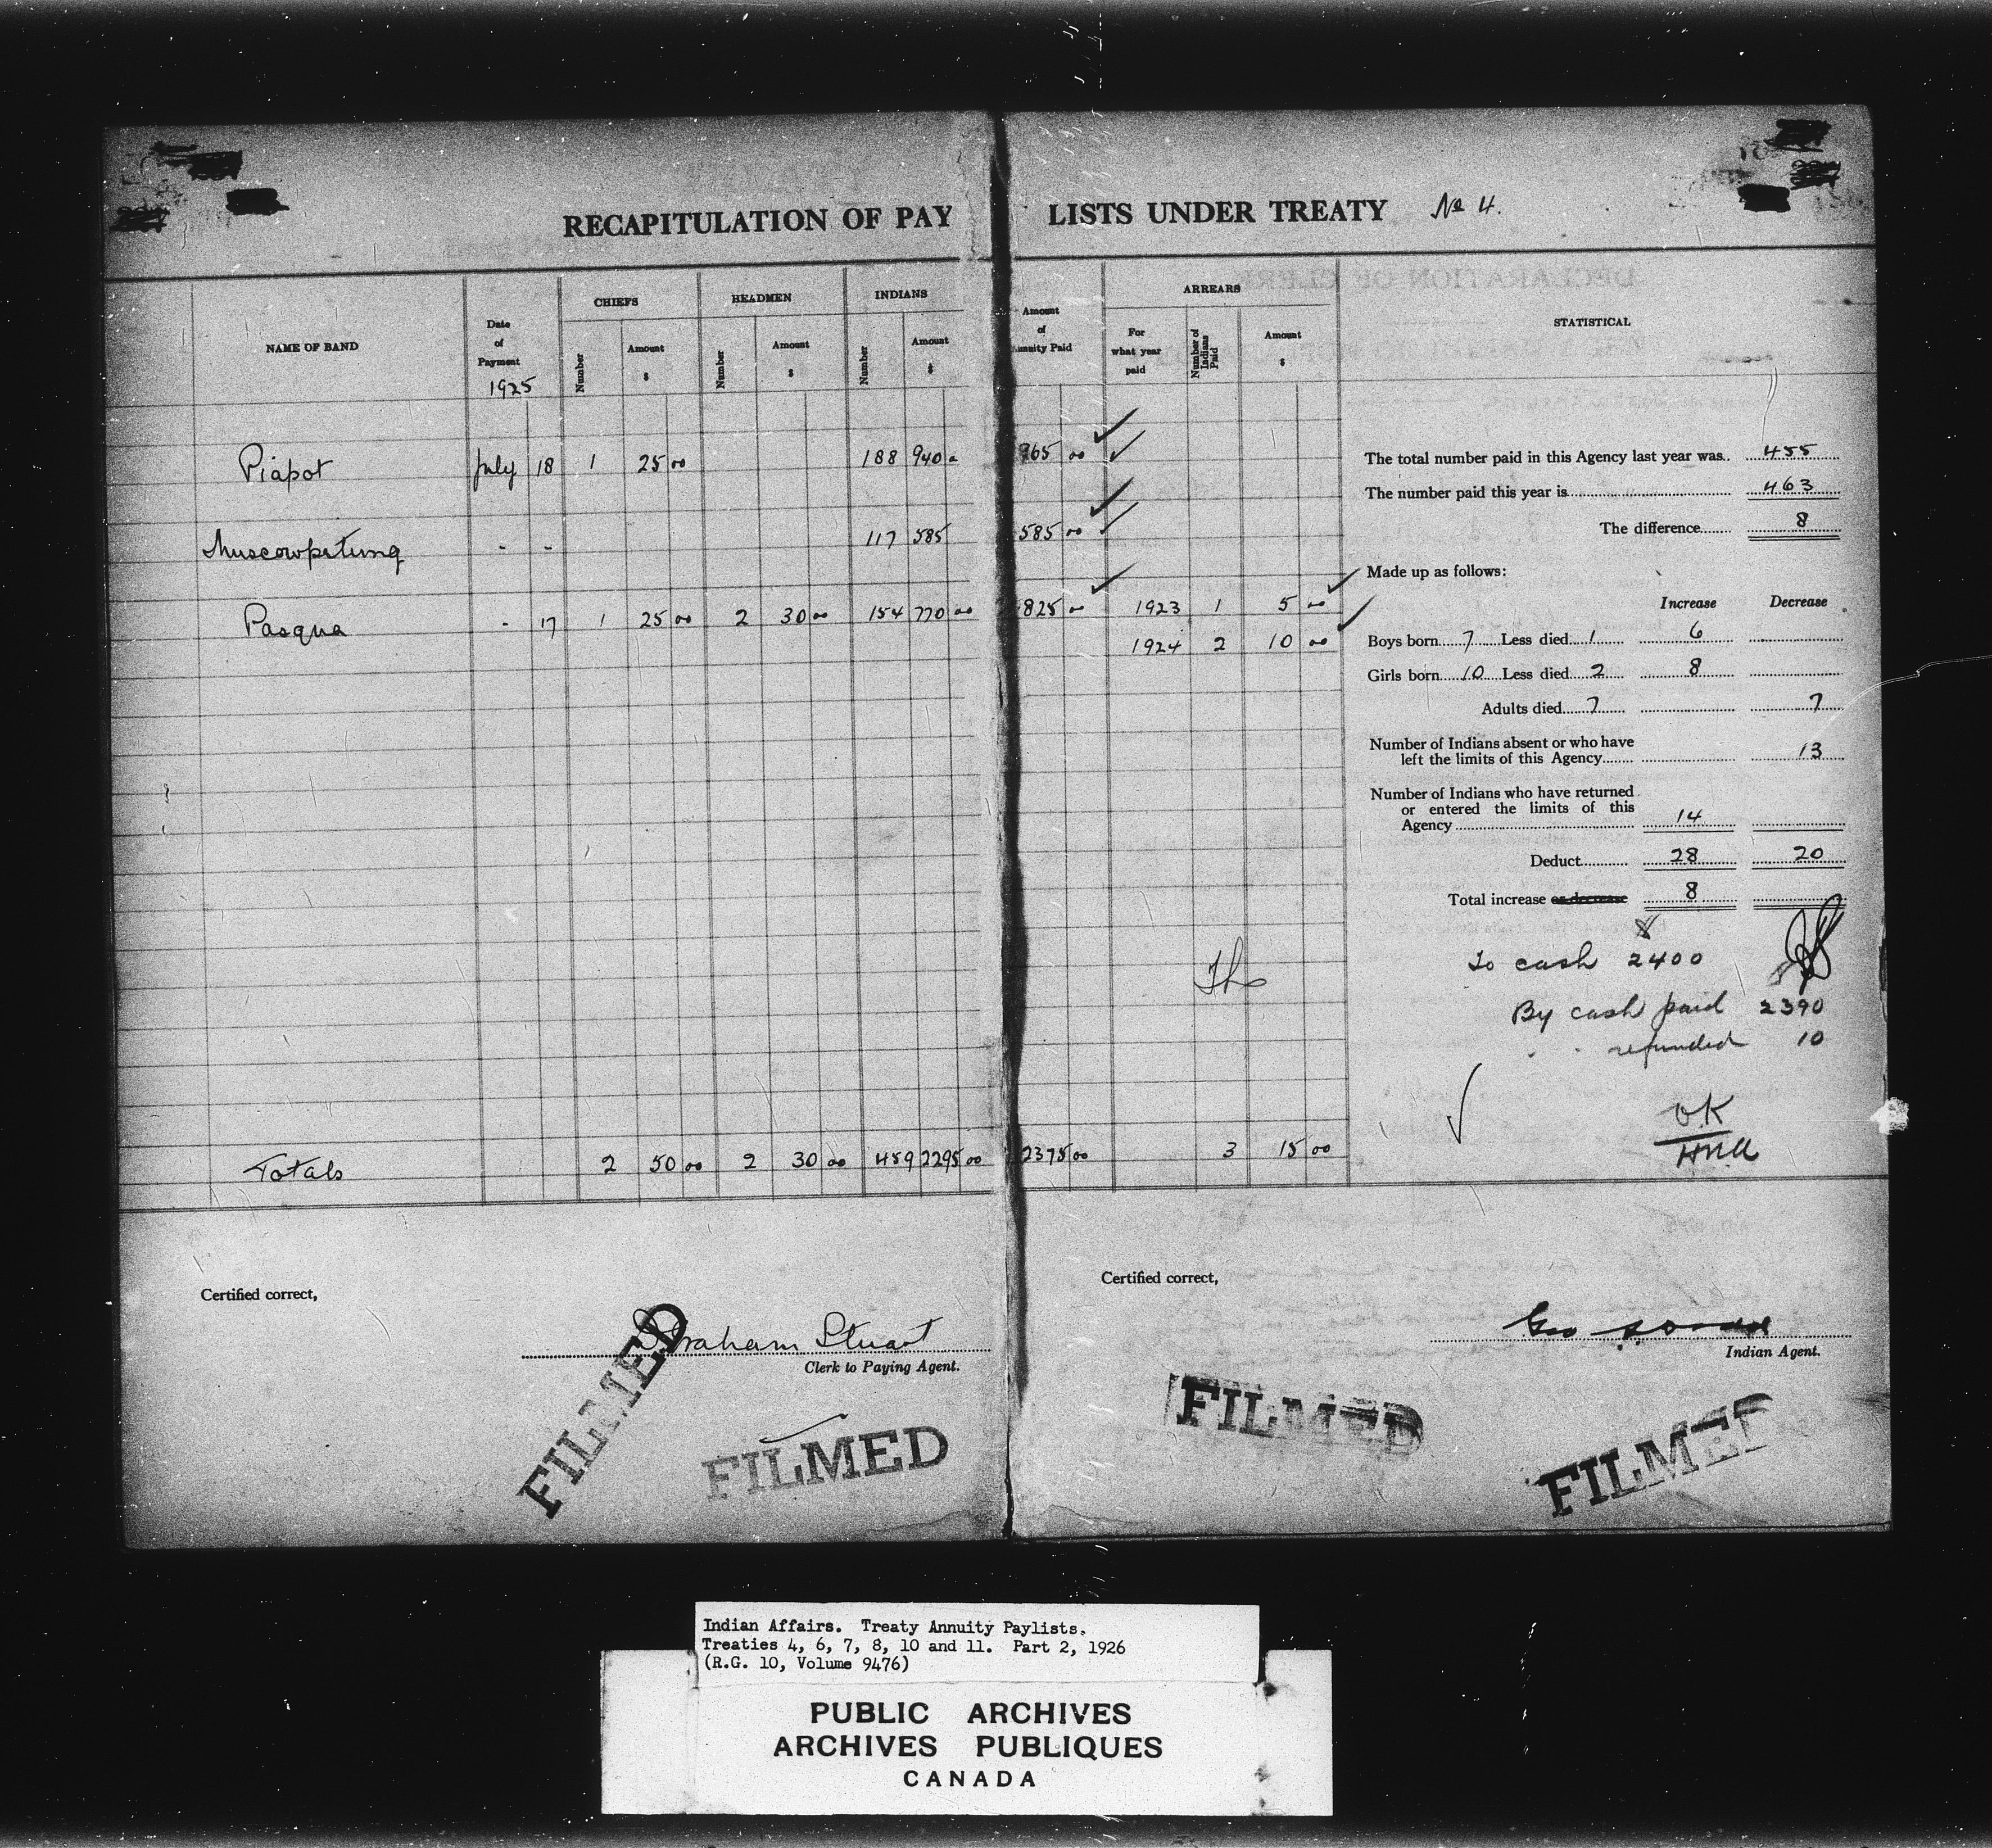 RECAPITULATION OF PAY LISTS UNDER TREATY No 4.
NAME OF BAND
Date of Payment 1925
CHIEFS Number Amount $
HEADMEN Number Amount $
INDIANS Number Amount $
Amount of Annuity Paid
ARREARS For what year paid Number of Indians Paid Amount $
STATISTICAL
Piapot July 18 1 25 00 188 940 965 00
Muscowpetung " " 117 585 585 00
Pasqua " 17 1 25 00 2 30 00 154 770 00 825 00 1923 1 5 00
1924 2 10 00
Totals 2 50 00 2 30 00 459 2295 00 2375 00 3 15 00
The total number paid in this Agency last year was.. 455
The number paid this year is 463
The difference 8
Made up as follows:
Increase Decrease
Boys born 7 Less died 1 6
Girls born 10 Less died 2 8
Adults died 7 7
Number of Indians absent or who have
left the limits of this Agency 13
Number of Indians who have returned
or entered the limits of this
Agency 14
Deduct 28 20
Total increase or decrease 8
8
To cash 2400
By cash paid 2390
" " refunded 10
O.K
Certified correct,
Graham Stuart
Clerk to Paying Agent.
Certified correct,
Indian Agent.
FILMED
FILMED
FILMED
FILMED
Indian Affairs. Treaty Annuity Paylists.
Treaties 4, 6, 7, 8, 10 and 11. Part 2, 1926
(R.G. 10, Volume 9476)
PUBLIC ARCHIVES
ARCHIVES PUBLIQUES
CANADA